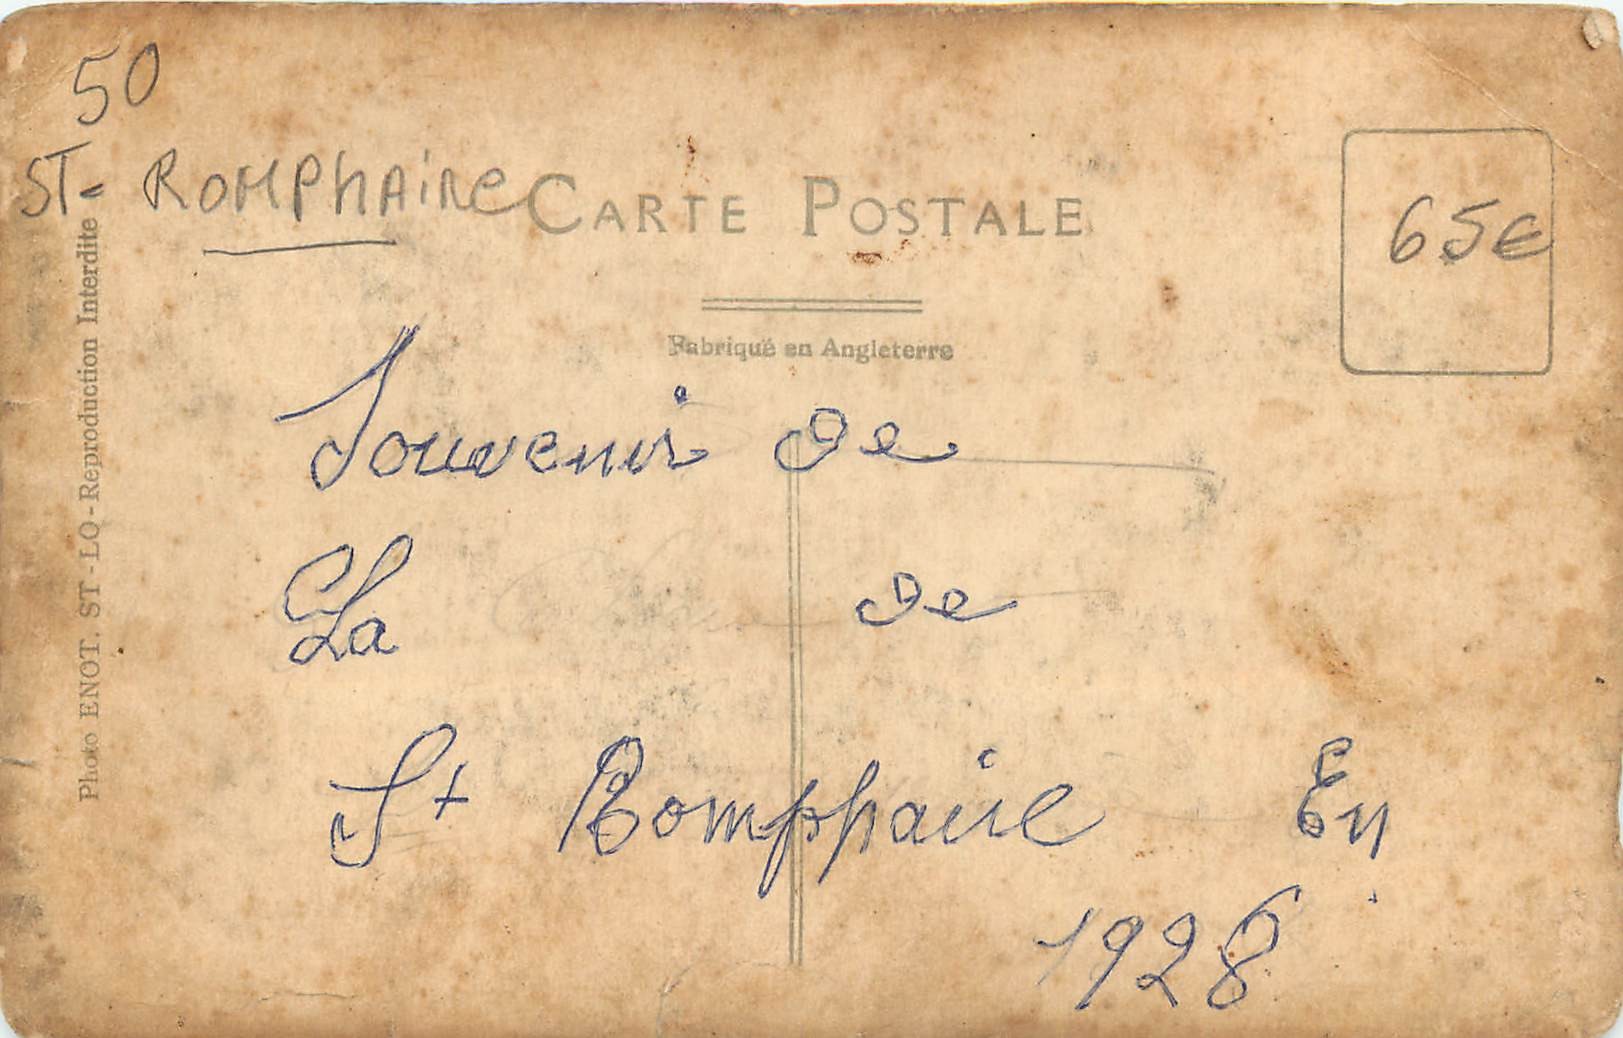 50
ST- ROMPHAIRE
CARTE POSTALE
65€
Fabriqué en Angleterre
Photo ENOT. ST-LO-Reproduction Interdite
Souvenir de
La de
St Romphaire En
1928